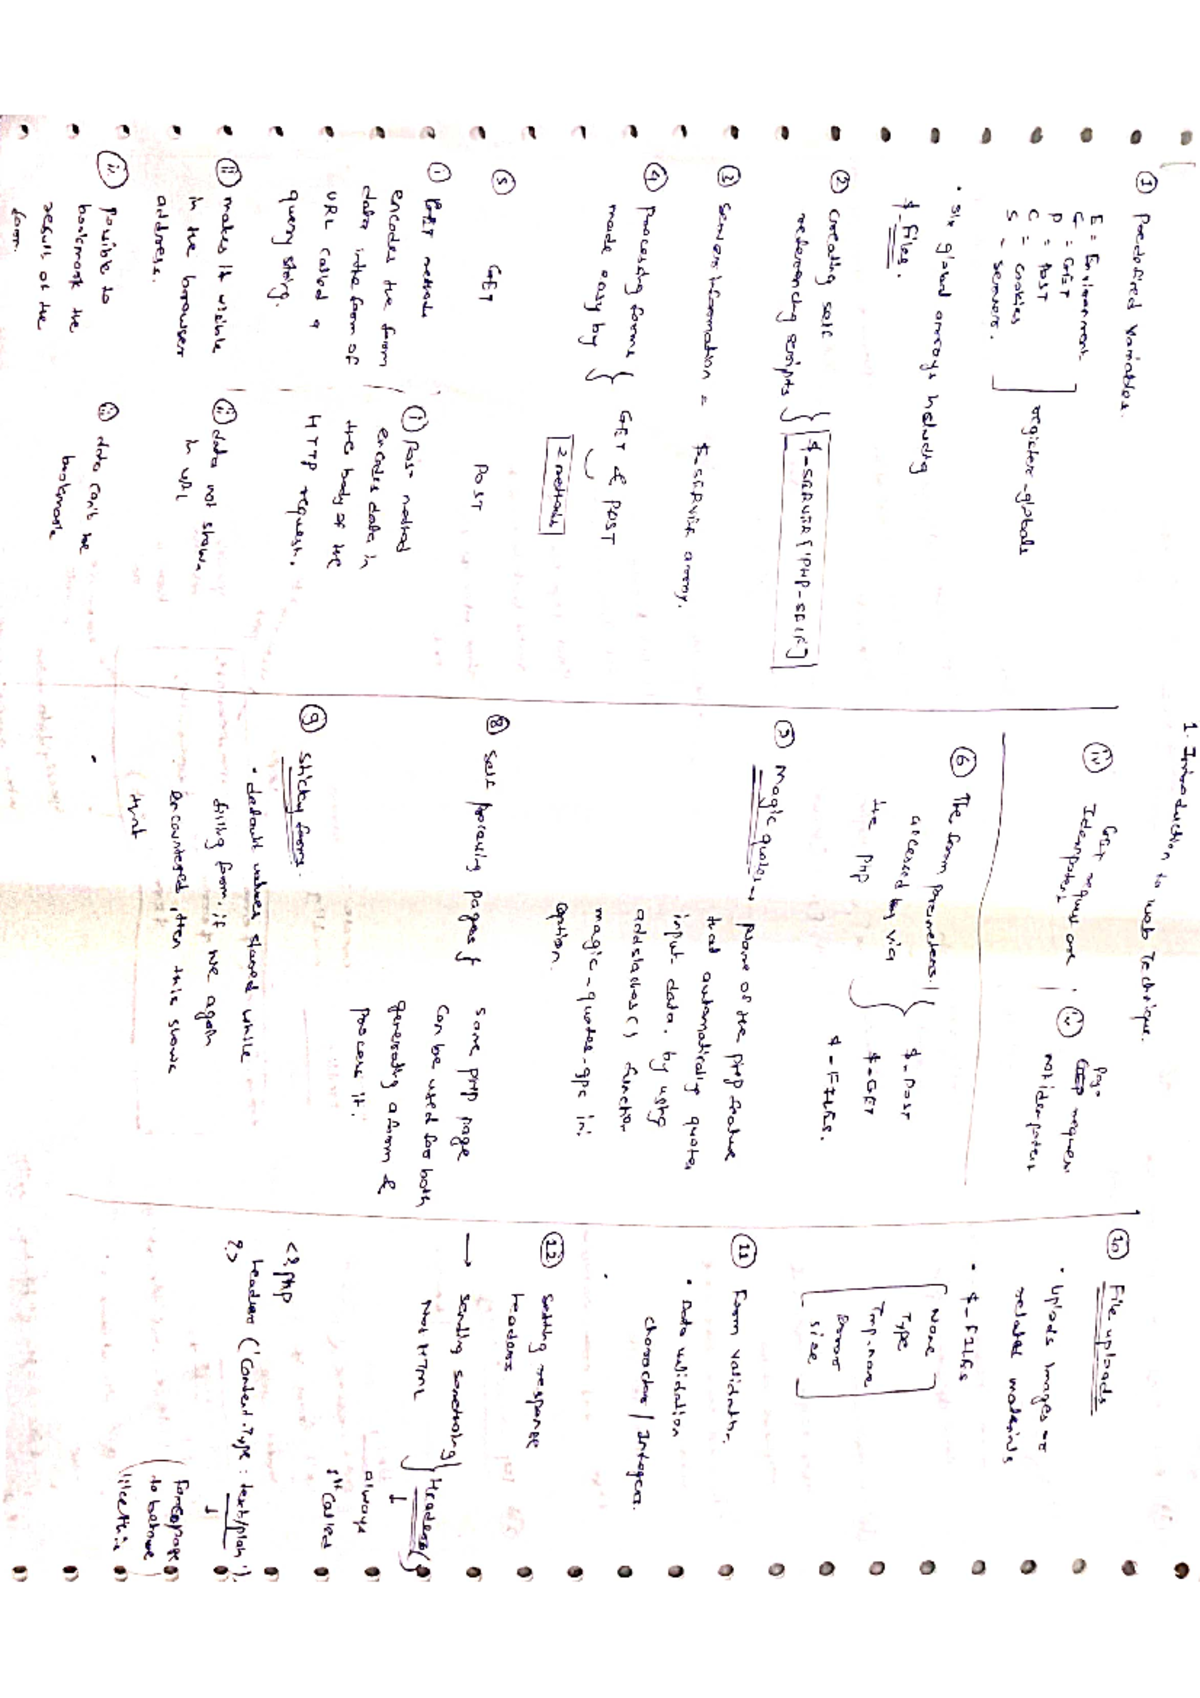 1. Introduction to web Technique.
① Predefined Variables.
E = Environment
G = GET
P = POST
C = cookies
S - servers.
register-globals
• six global arrays including
$_Files.
② creating self
referencing scripts
$_SERVER['PHP_SELF']
③ Server information = $_SERVER array.
④ Processing forms
made easy by
GET & POST
2 methods
⑤ GET POST
① GET methods
encodes the form
data in the form of
URL called a
query string.
① Post method
encodes data in
the body of the
HTTP request.
② makes it visible
in the browser
address.
② data not shown
in URL
possible to
bookmark the
result of the
form.
③ data can't be
bookmark
iv GET request are
Idempotent
iv Post request
not idempotent
⑥ The form parameters
accessed by via
the PHP
$_POST
$_GET
$_FILES.
Magic quotes → Name of the PHP feature
that automatically quotes
input data. by using
addslashes() function
magic_quotes-gpc in:
option.
⑧ Self processing pages
same PHP page
can be used for both
generating a form &
process it.
⑨ Sticky forms.
• default values stored while
filling form. if we again
encountered, then this shows
that
⑩ File uploads
• Uploads images or
related materials
• $_FILES
Name
Type
Tmp.name
Error
size
⑪ Form validation.
• Data validation
character / Integers.
⑫ Setting response
headers
→ sending something
Not HTML
Headers()
↓
always
1st called
<?php
headers ('Content.Type : text/plain');
?>
↓
Force page
to behave
like this